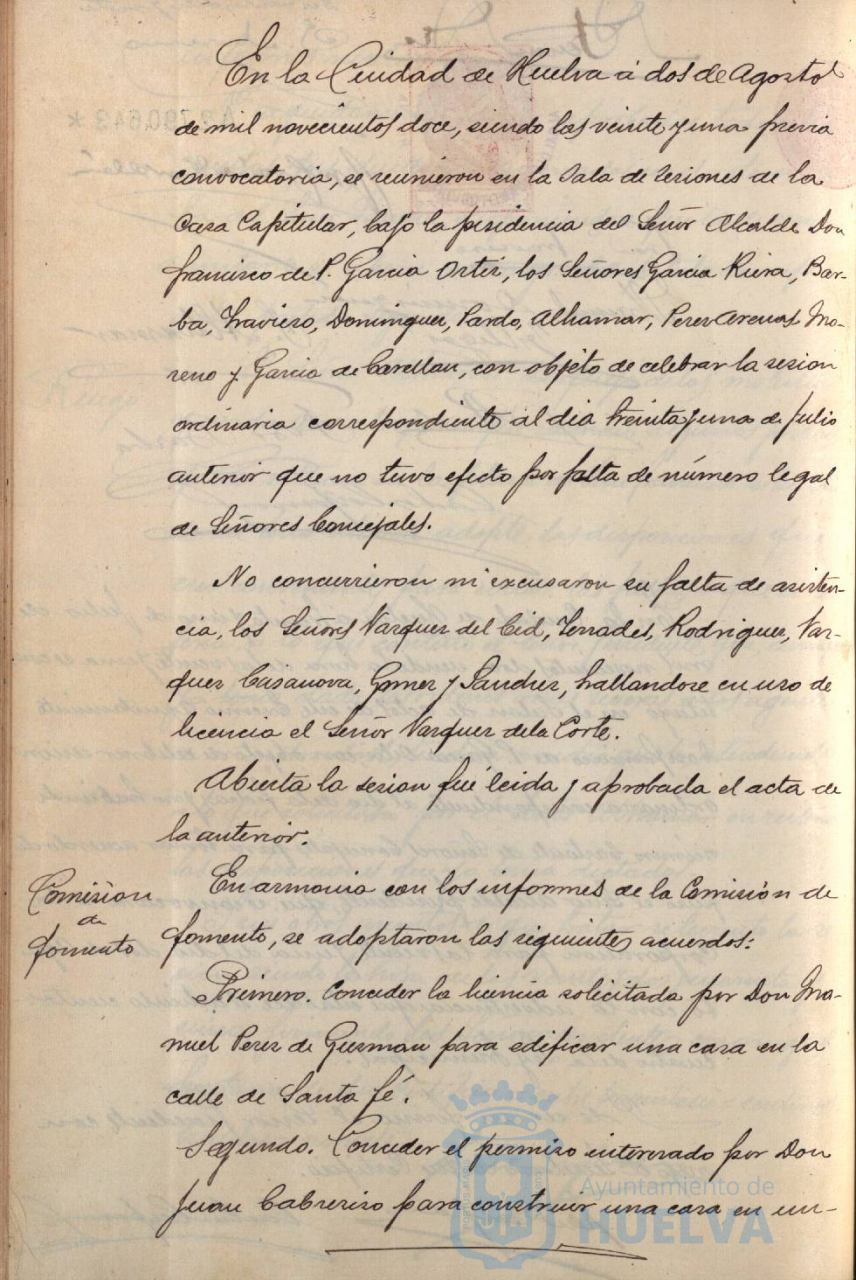 En la Ciudad de Huelva á dos de Agosto
de mil novecientos doce, siendo las veinte y una previa
convocatoria, se reunieron en la Sala de Sesiones de la
Casa Capitular, bajo la presidencia del Señor Alcalde Don
Francisco de P. Garcia Ortiz, los Señores Garcia Riera, Bar-
ba, Travieso, Dominguez, Pardo, Alhamar, Perez Arenas, Mo-
reno y Garcia de Carellan, con objeto de celebrar la sesion
ordinaria correspondiente al dia treinta y uno de Julio
anterior que no tuvo efecto por falta de número legal
de Señores Concejales.
No concurrieron ni excusaron su falta de asisten-
cia, los Señores Vazquez del Cid, Terrades, Rodriguez, Vaz-
quez Casanova, Gomez y Sanchez, hallandose en uso de
licencia el Señor Vazquez de la Corte.
Abierta la sesion fué leida y aprobada el acta de
la anterior.
Comision
de
fomento
En armonia con los informes de la Comisión de
fomento, se adoptaron las siguientes acuerdos:
Primero. Conceder la licencia solicitada por Don Ma-
nuel Perez de Guzman para edificar una casa en la
calle de Santa Fé.
Segundo. Conceder el permiso interesado por Don
Juan Cabrerizo para construir una casa en un-
Ayuntamiento de
HUELVA